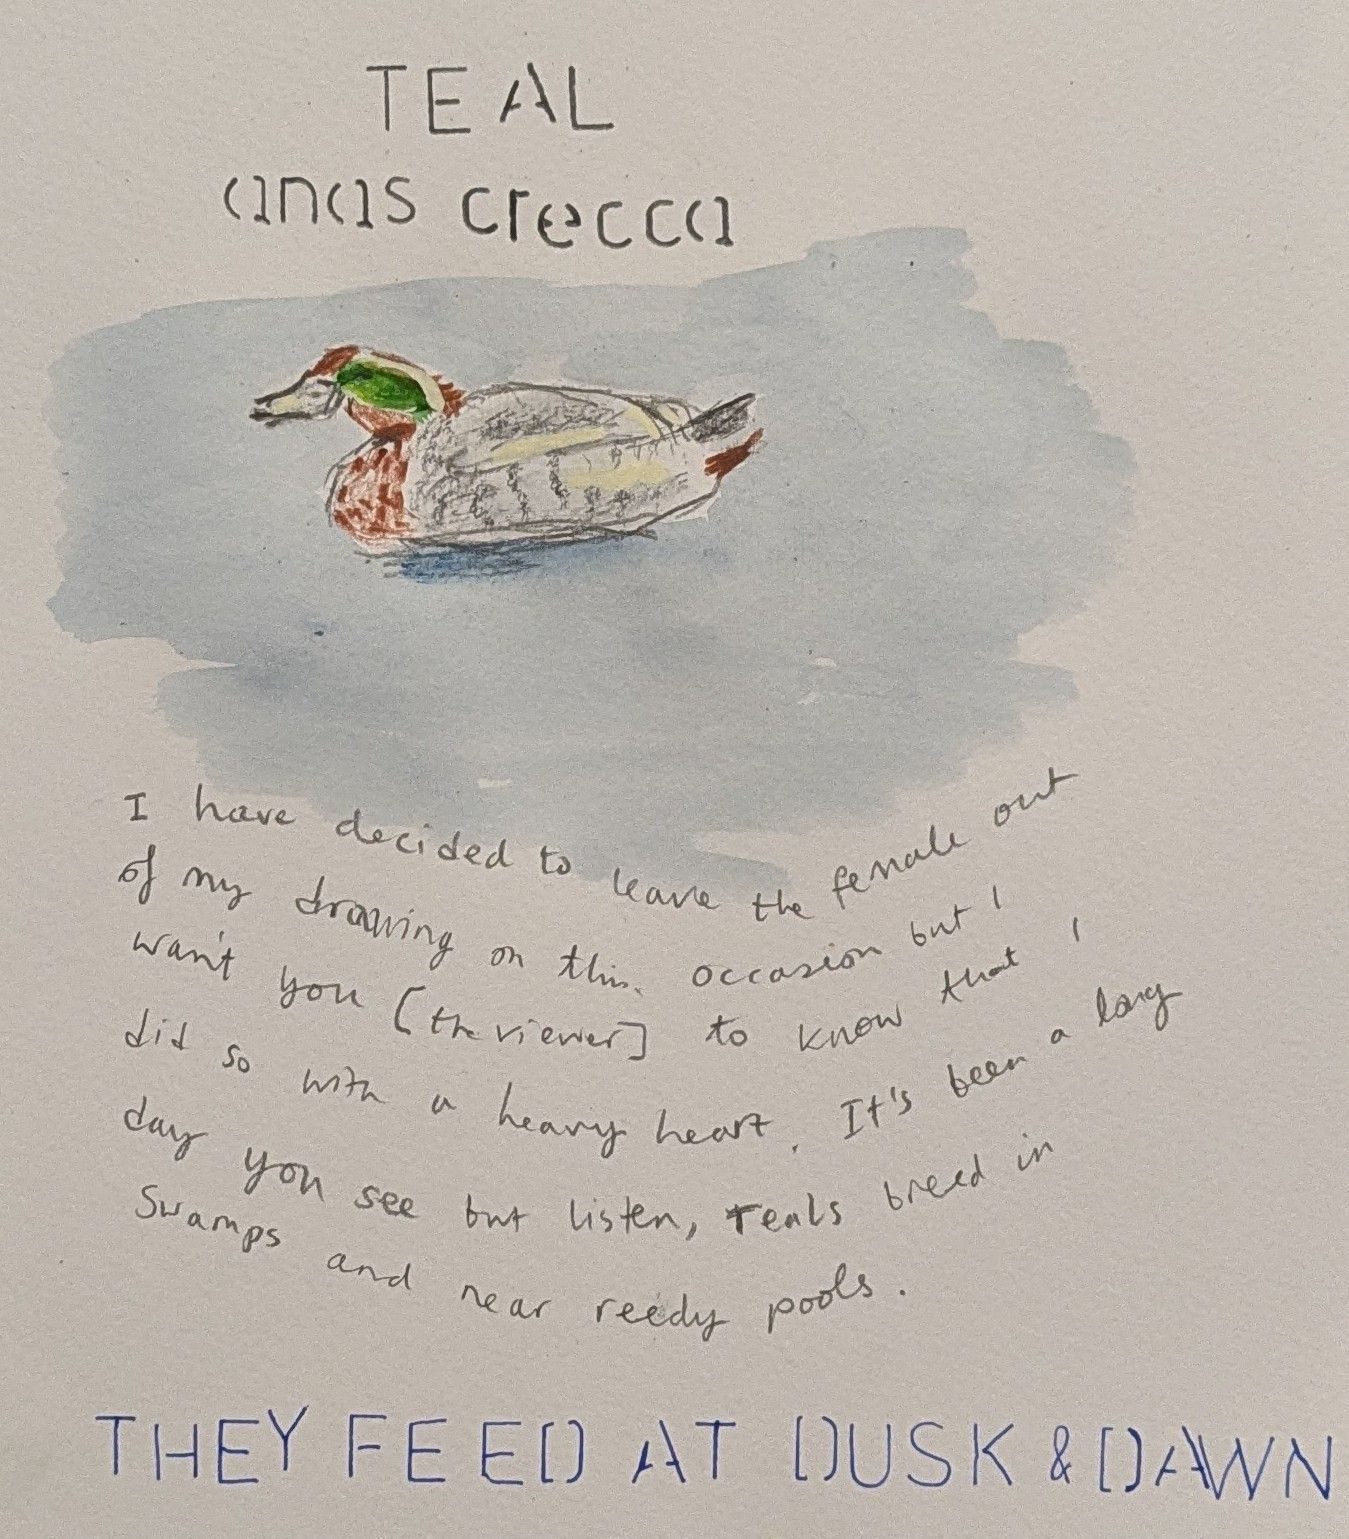 TEAL
anas crecca
I have decided to leave the female out
of my drawing on this occasion but I
wan't you [the viewer] to know that I
did so with a heavy heart. It's been a long
day you see but listen, Teals breed in
Swamps and near reedy pools.
THEY FEED AT DUSK & DAWN